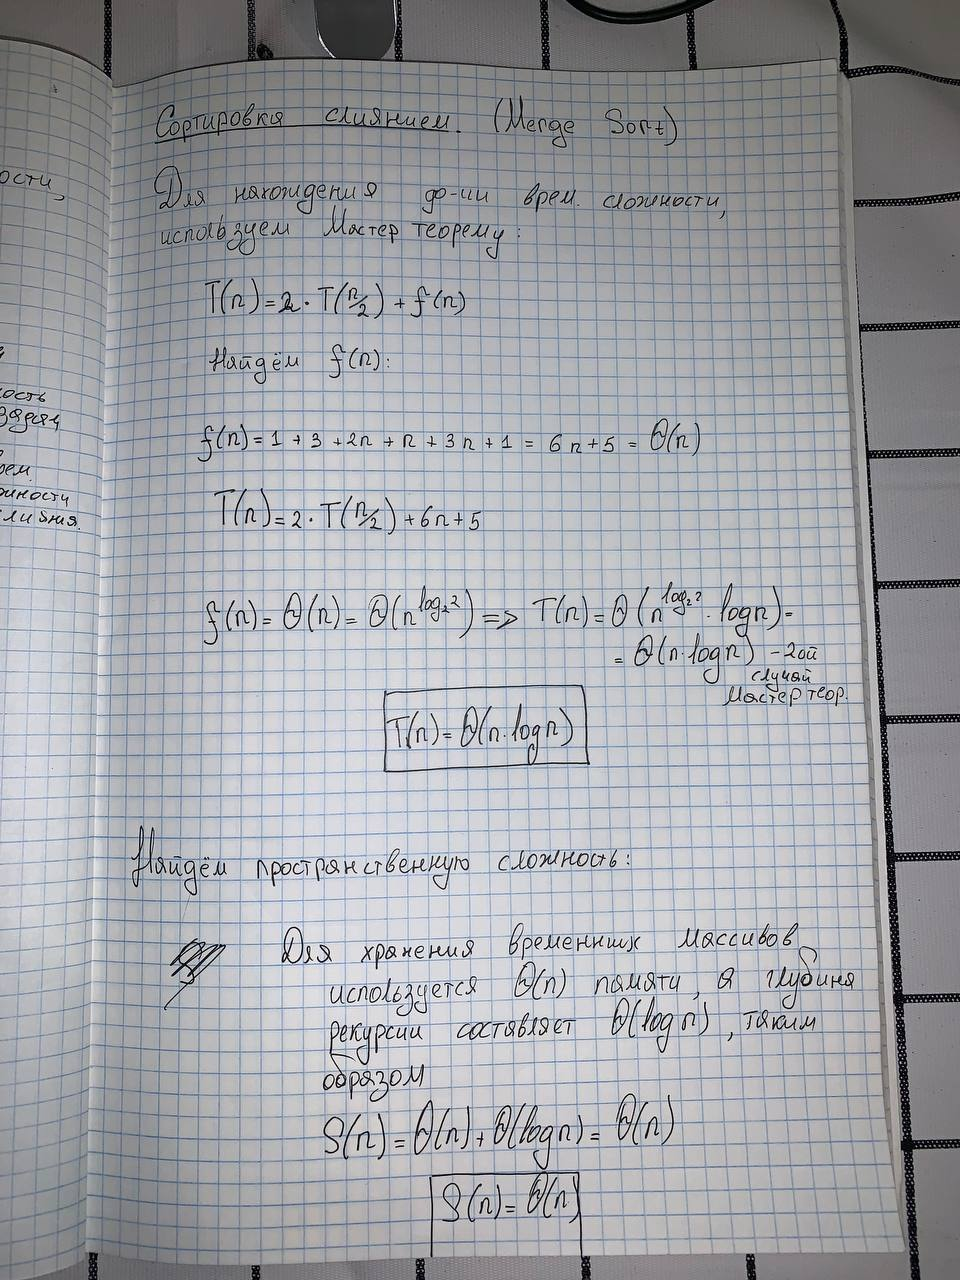 ости,
ность
задач
рем.
лияния.
Сортировка слиянием. (Merge Sort)
Для нахождения ф-ии врем. сложности,
используем Мастер теорему:
T(n) = 2 · T(n/2) + f(n)
Найдём f(n):
f(n) = 1 + 3 + 2n + n + 3n + 1 = 6n + 5 = Θ(n)
T(n) = 2 · T(n/2) + 6n + 5
f(n) = Θ(n) = Θ(n^log₂2) => T(n) = Θ(n^log₂2 · log n) =
= Θ(n · log n) - 2ой
случай
Мастер теор.
T(n) = Θ(n · log n)
Найдём пространственную сложность:
Для хранения временных массивов
используется Θ(n) памяти, а глубина
рекурсии составляет Θ(log n), таким
образом
S(n) = Θ(n) + Θ(log n) = Θ(n)
S(n) = Θ(n)